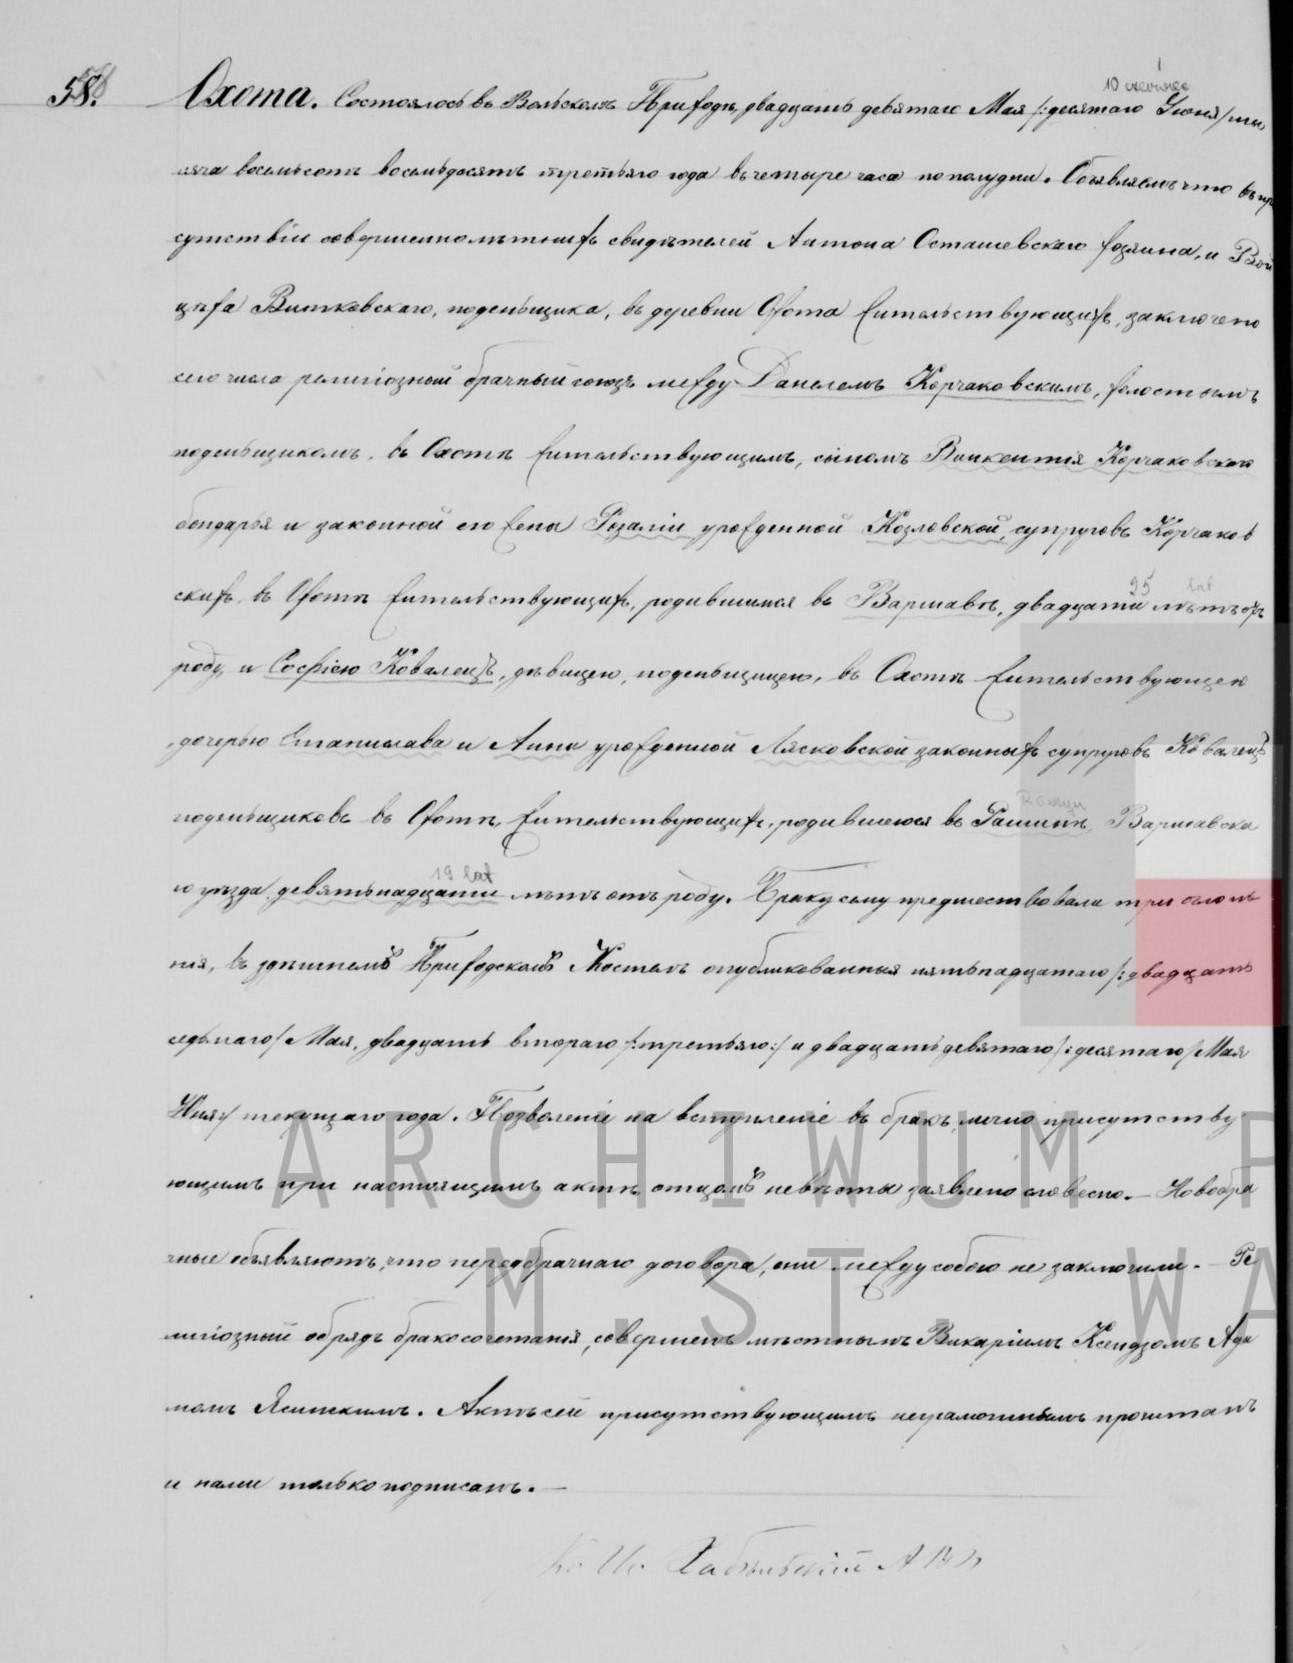 58. Охота. Состоялось въ Вольскомъ Приходѣ, двадцать девятаго Мая /:десятаго Іюня/ ты
10 czerwca
сяча восемьсотъ восемьдесятъ третьяго года въ четыре часа по полудни. Объявляемъ что въ при
сутствіи совершеннолѣтнихъ свидѣтелей Антона Осташевскаго хозяина, и Вой
цѣха Витковскаго, поденьщика, въ деревни Охота жительствующихъ, заключено
сего числа религіозный брачный союзъ между Данелемъ Корчаковскимъ, холостымъ
поденьщикомъ, въ Охотѣ жительствующимъ, сыномъ Викентія Корчаковскаго
бондарья и законной его жены Розаліи урожденной Козловской, супруговъ Корчаков
скихъ, въ Охотѣ жительствующихъ, родившимся въ Варшавѣ, двадцати лѣтъ отъ
25 lat
роду, и Софіею Ковалецъ, дѣвицею, поденьщицею, въ Охотѣ жительствующею
, дочерью Станислава и Анны урожденной Лясковской законныхъ супруговъ Ковалецъ
поденьщиковъ въ Охотѣ, жительствующихъ, родившеюся въ Рашинѣ, Варшавска
Raszyn
го уѣзда, девятьнадцати лѣтъ отъ роду. Браку сему предшествовали три оглаше
19 lat
нія, въ здѣшнемъ Приходскомъ Костелѣ опубликованныя пятьнадцатаго /:двадцать
седьмаго/ Мая, двадцать втораго /:третьяго:/ и двадцать девятаго /:десятаго/ Мая
Іюня:/ текущаго года. Позволеніе на вступленіе въ бракъ, лично присутству
ющимъ при настоящимъ актѣ, отцомъ невѣсты заявлено словесно. — Новобра
чные объявляютъ, что передбрачнаго договора, они между собою не заключили. — Ре
лигіозный обрядъ бракосочетанія, совершенъ мѣстнымъ Викаріимъ Ксендзомъ Ада
момъ Ясинскимъ. Актъ сей присутствующимъ неграмотнымъ прочитанъ
и нами только подписанъ. —
ARCHIWUM P
M. ST. WA